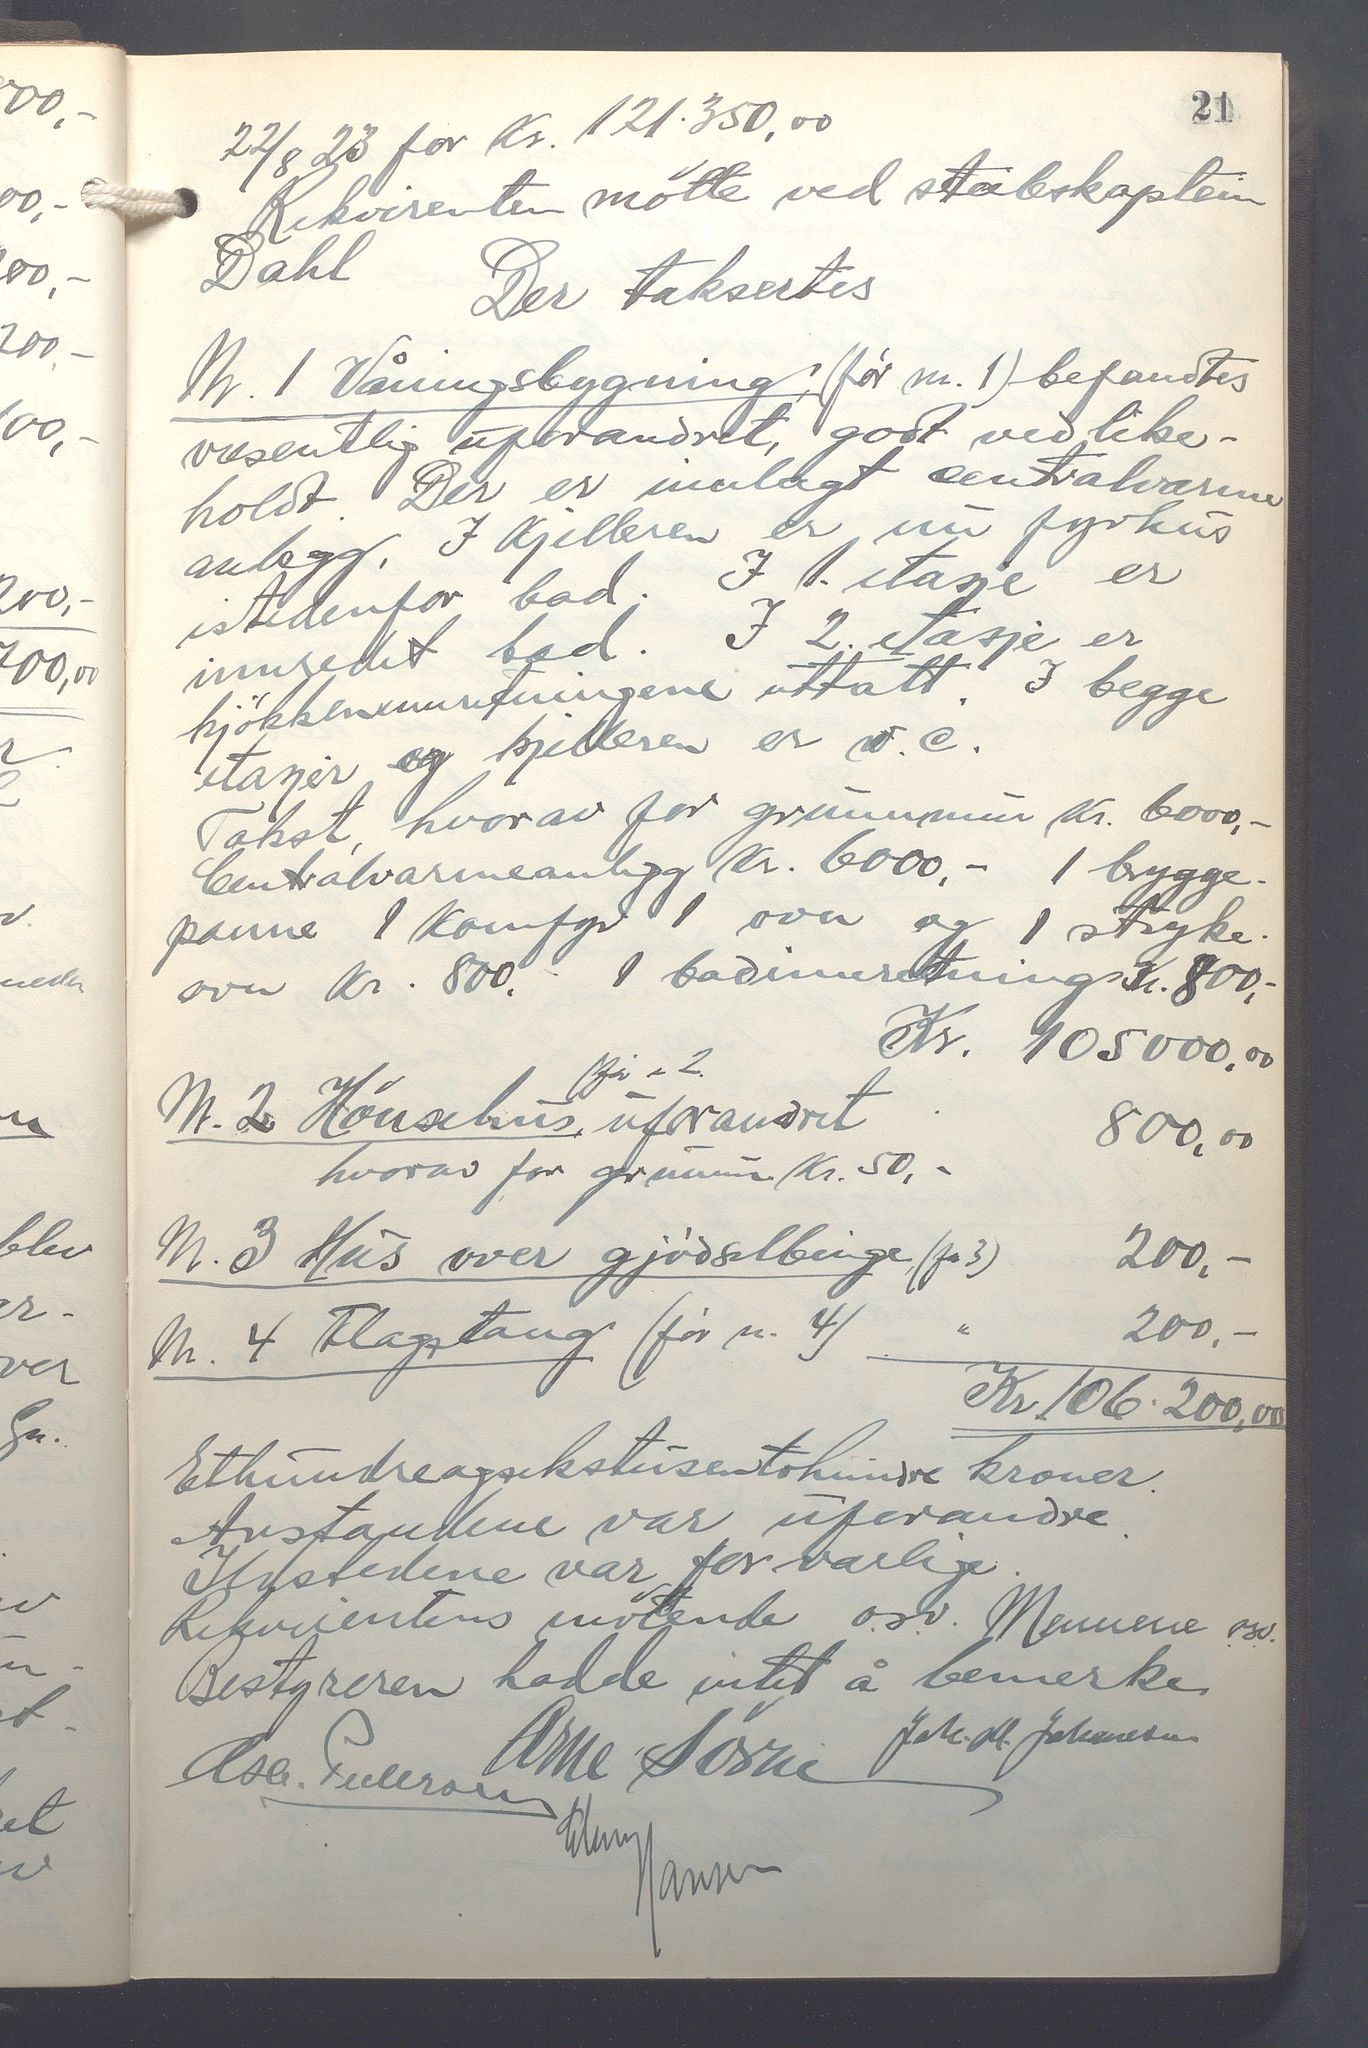 21
22/8 23 for Kr. 121.350,00
Rekvirenten mötte ved stabskaptein
Dahl
Der taksertes
Nr. 1 Våningsbygning, (før nr. 1) befandtes
væsentlig uforandret, godt vedlike-
holdt. Der er innlagt centralvarme
anlegg. I kjelleren er nu fyrhus
istedenfor bad. I 1. etasje er
innredet bad. I 2. etasje er
kjökkeninnretningene uttatt. I begge
etasjer og kjelleren er v.c.
Takst, hvorav for grunnmur Kr. 6000,-
Centralvarmeanlegg Kr. 6000,- 1 brygge-
panne 1 Komfyr 1 ovn og 1 stryke-
ovn Kr. 800,- 1 badinnretning Kr. 800,-
Kr. 105000,00
(før nr. 2
Nr. 2 Hönsehus, uforandret 800,00
hvorav for grunnm. Kr. 50,-
Nr. 3 Hus over gjödselbinge, (før 3) 200,-
Nr. 4 Flagstang (før nr. 4) " 200,-
Kr. 106.200,00
Ethundreogsekstusentohundre kroner.
Avstandene var uforandre.
Ildstedene var forsvarlige.
Rekvirentens mötende o.s.v. Mennene osv.
Bestyreren hadde intet å bemerke
Arne Sörvie Joh. M. Johannesen
Pedersen
Hansen